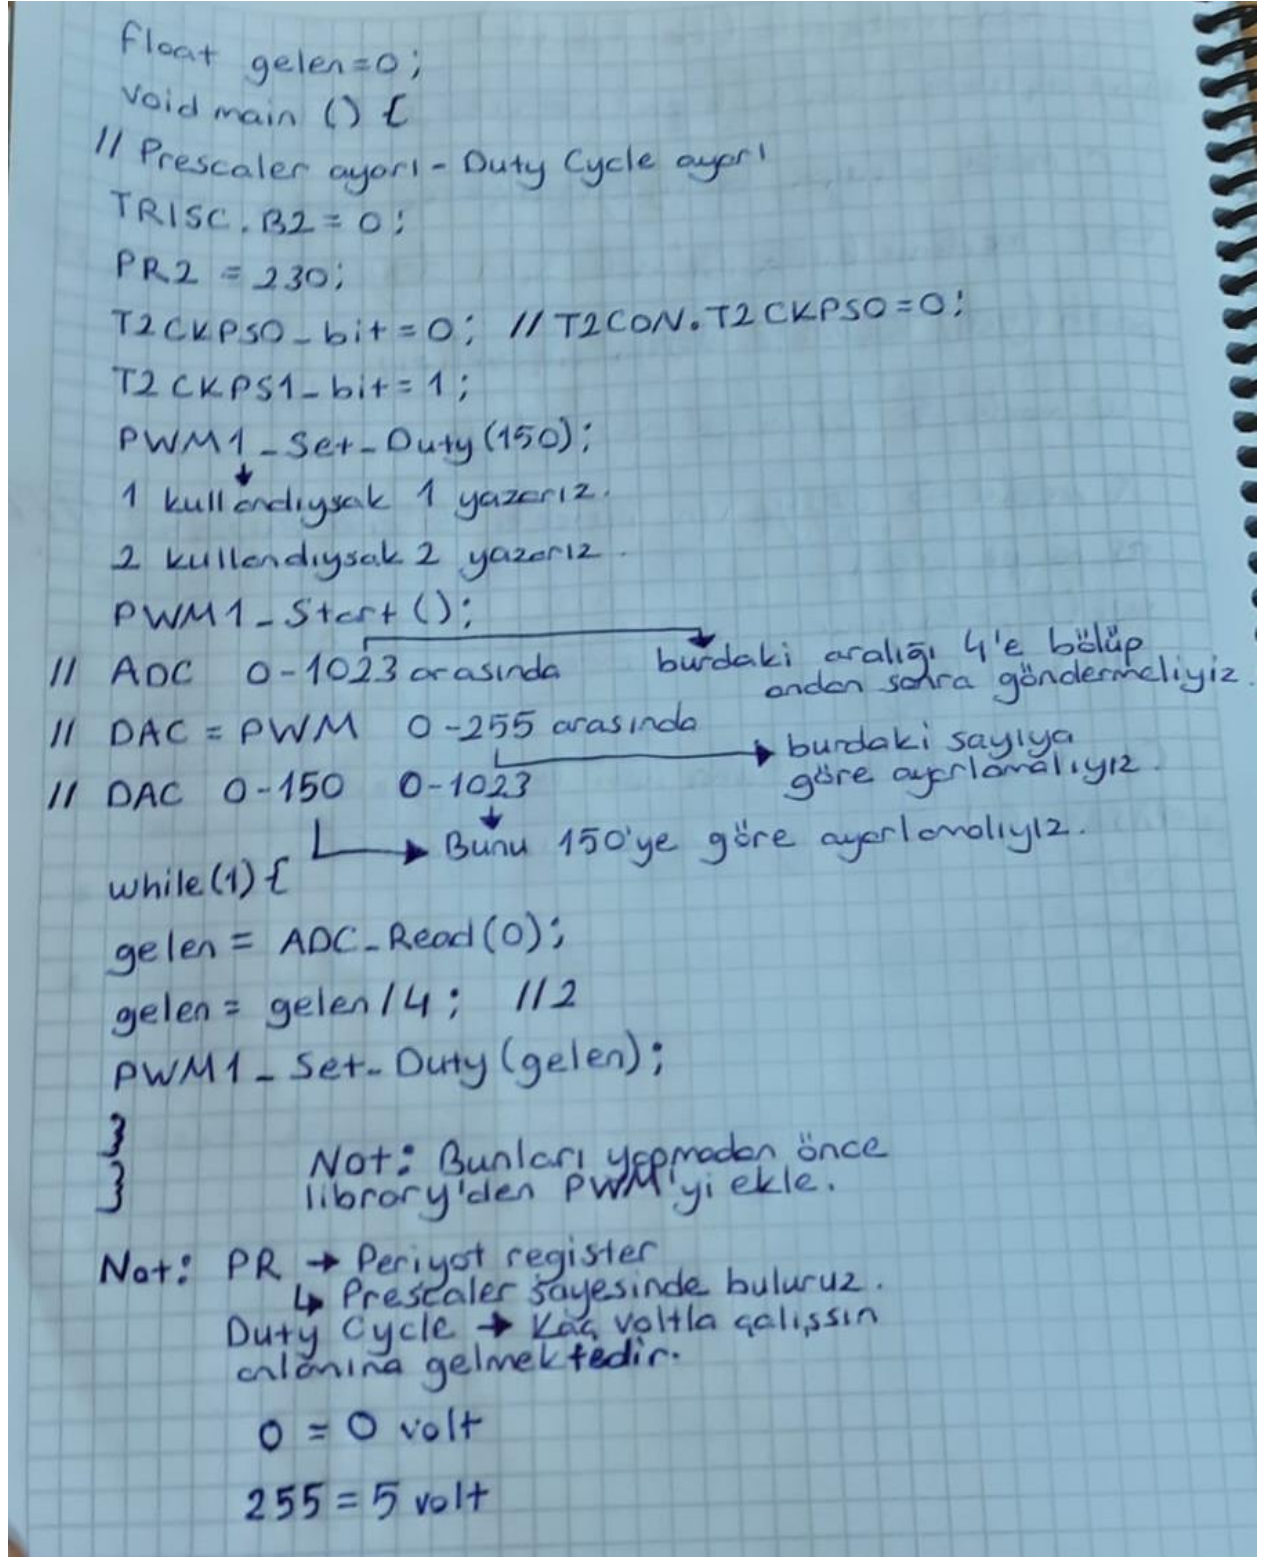 float gelen=0;
void main () {
// Prescaler ayarı - Duty Cycle ayarı
TRISC.B2=0;
PR2 = 230;
T2CKPS0_bit=0; // T2CON.T2CKPS0=0;
T2CKPS1_bit=1;
PWM1_Set_Duty(150);
1 kullandıysak 1 yazarız.
2 kullandıysak 2 yazarız.
PWM1_Start();
// ADC 0-1023 arasında burdaki aralığı 4'e bölüp
ondan sonra göndermeliyiz.
// DAC = PWM 0-255 arasında burdaki sayıya
göre ayarlamalıyız.
// DAC 0-150 0-1023
Bunu 150'ye göre ayarlamalıyız.
while(1){
gelen = ADC_Read(0);
gelen = gelen/4; //2
PWM1_Set_Duty(gelen);
}
}
Not: Bunları yapmadan önce
library'den PWM'yi ekle.
Not: PR → Periyot register
↳ Prescaler sayesinde buluruz.
Duty Cycle → Kaç voltla çalışsın
anlamına gelmektedir.
0 = 0 volt
255 = 5 volt